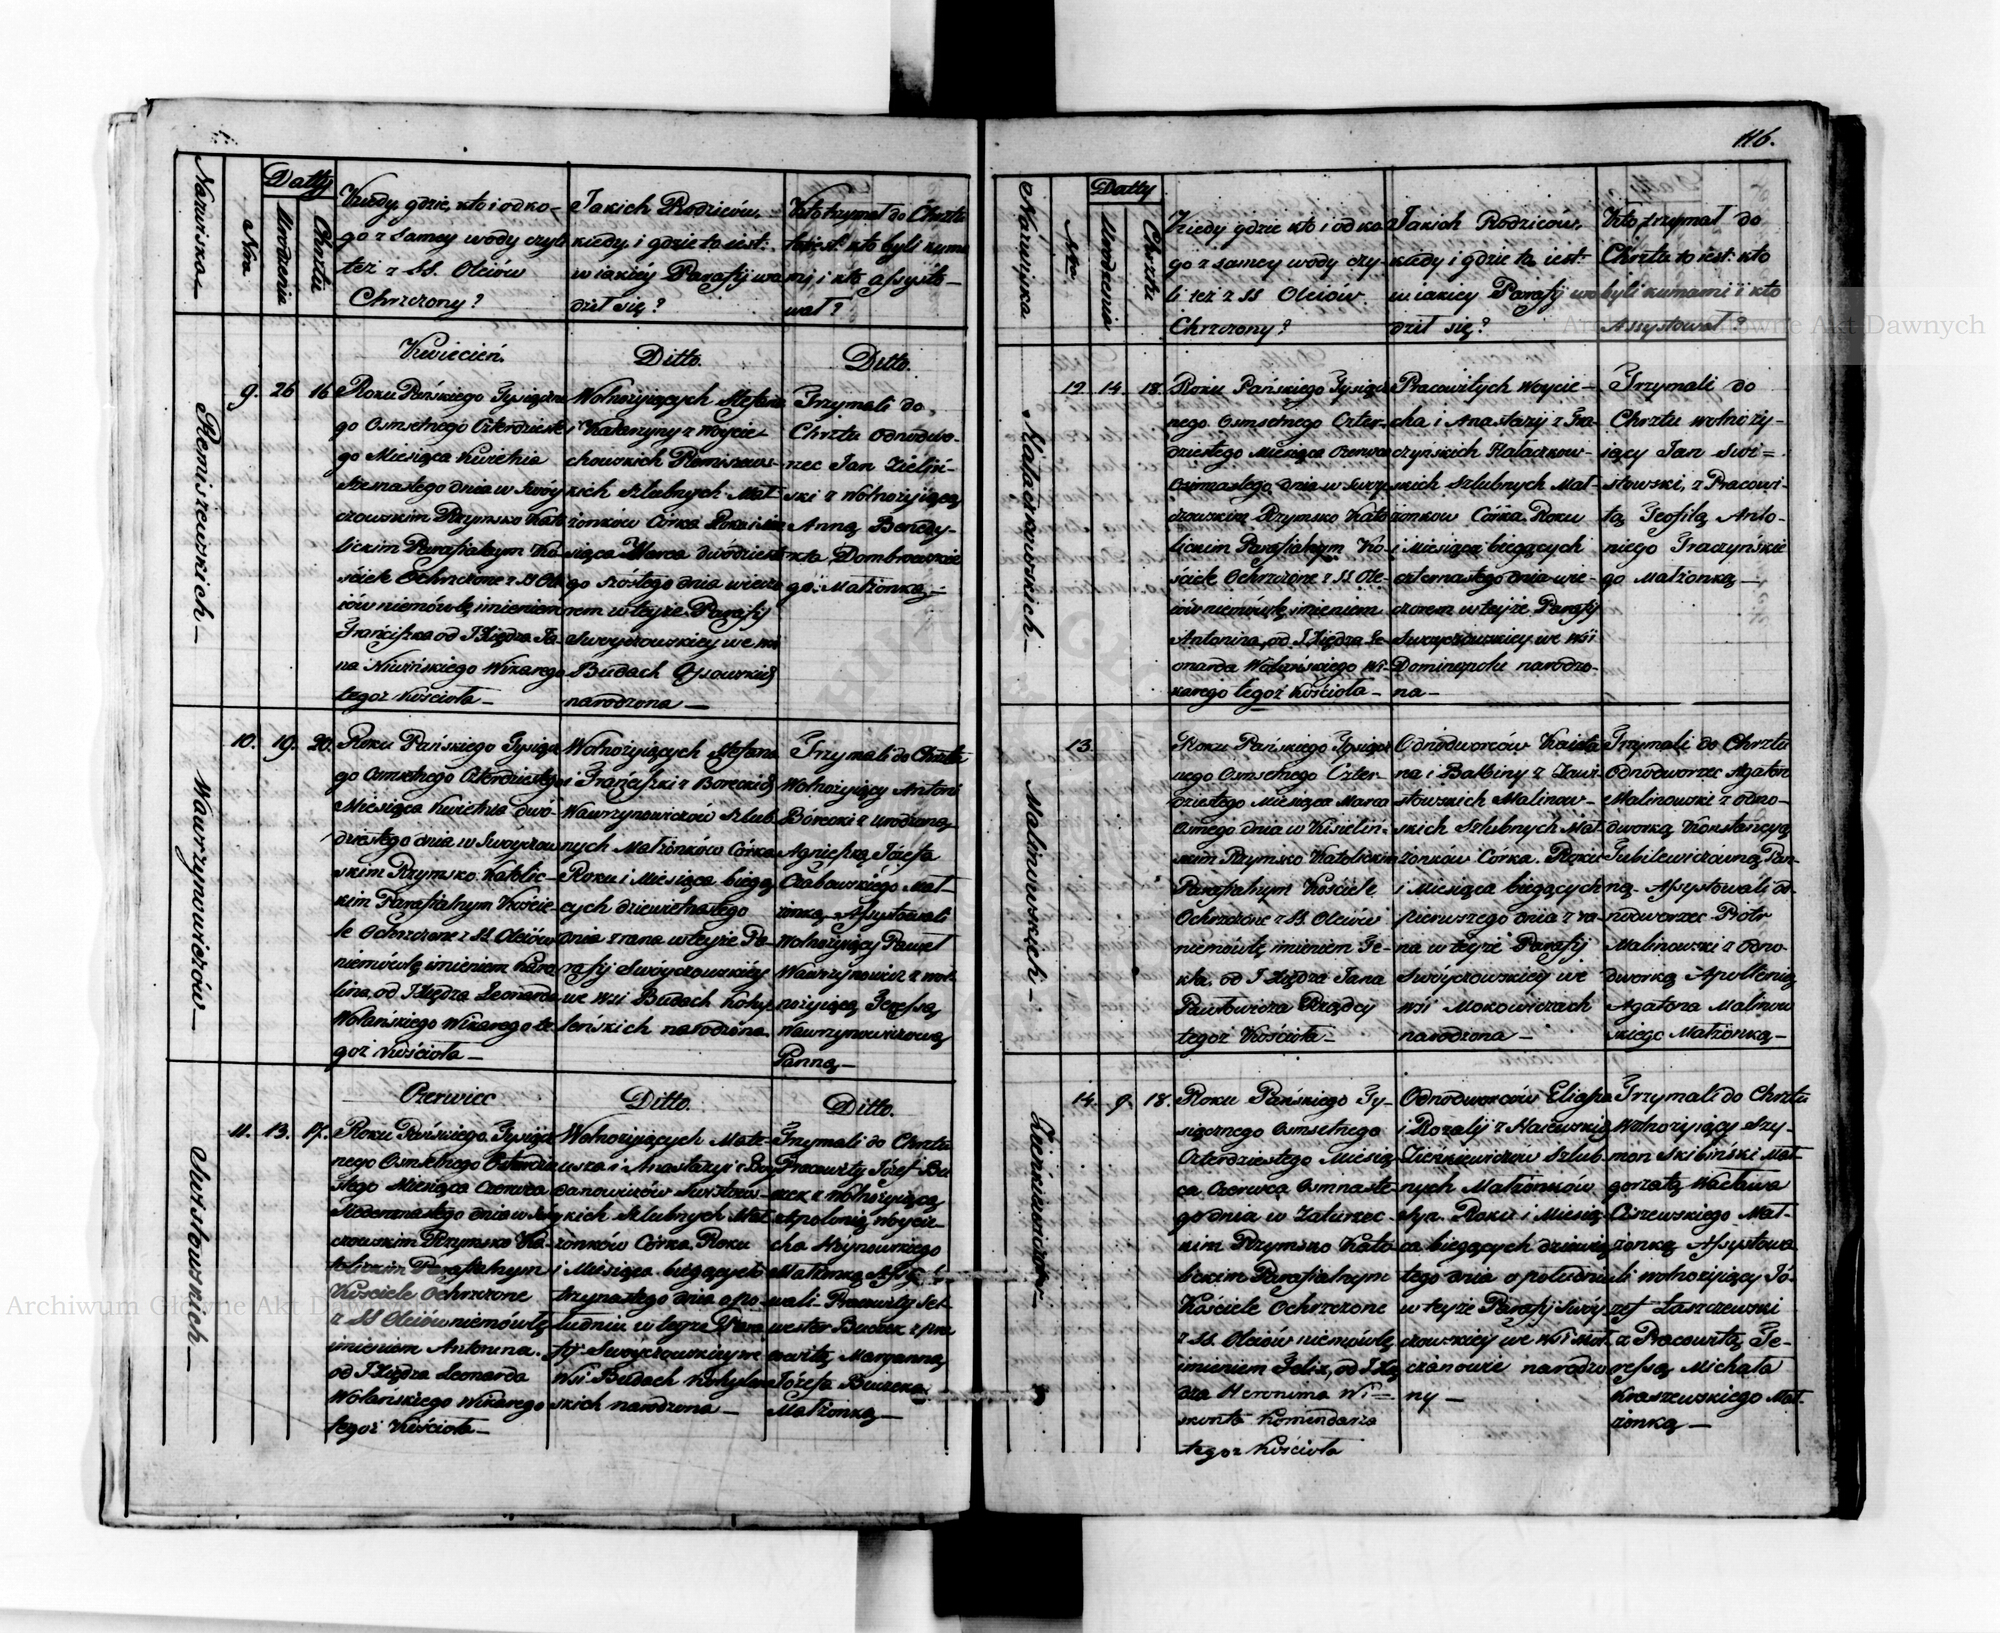 Nazwiska
Nro
Datty
Urodzenia
Chrztu
Kiedy, gdzie, kto i od ko-
go z samey wody czyli
też z SS. Oleiów
Chrzczony?
Jakich Rodziców,
kiedy i gdzie to iest:
w iakiéy Parafij uro
dził się?
Kto trzymał do Chrztu
to iest: kto byli kuma
mi, i kto assysto-
wał?
Kwiecień.
Ditto.
Ditto.
Remiszewskich
9. 26 16
Roku Pańskiego Tysiączne
go Osmsetnego Czterdzieste
go Miesiąca Kwietnia
szesnastego dnia w Swóy
czowskim Rzymsko Kato
lickim Parafialnym Ko
ściele Ochrzczone z SS Ole
iów niemówlę imieniem
Franciszka od J Xiędza Ja
na Niwińskiego Wikarego
tegoż Kościoła
Wolnożyiących Stefana
i Katarzyny z Woycie-
chowskich Remiszews-
kich Szlubnych Mał
żonków Córka Roku i Mie
siąca Marca dwódzieste
go szóstego dnia wieczo
rem w teyże Parafij
Swoyczowskiey we wsi
Budach Ossowskich
narodzona
Trzymali do
Chrztu Odnodwo-
rzec Jan Zieliń-
ski z Wolnożyiącą
Anną Benedy-
kta Dombrowskie
go Małżonką
Wawrzynowiczów
10. 19. 20.
Roku Pańskiego Tysiączne
go Osmsetnego Czterdziestego
Miesiąca Kwietnia dwó-
dziestego dnia w Swoyczow
skim Rzymsko Katolic-
kim Parafialnym Koście-
le Ochrzczone z SS. Oleiów
niemówlę imieniem Karo
lina, od J Xiędza Leonarda
Wolańskiego Wikarego te-
goż Kościoła
Wolnożyiących Stefana
i Franciszki z Boreckich
Wawrzynowiczów Szlub
nych Małżonków Córka
Roku i Miesiąca bieżą
cych dziewietnastego
dnia z rana w teyże Pa-
rafij Swóyczowskiéy
we wsi Budach Kohy
leńskich narodzona.
Trzymali do Chrztu
Wolnożyiący Antoni
Borecki z urodzoną
Agnieszką Józefa
Czabowskiego Mał-
żonką Assystowali
Wolnożyiący Paweł
Wawrzynowicz z wol
nożyiącą Teressą
Wawrzynowiczową
Panną
Czerwiec
Ditto.
Ditto.
Swistowskich
11. 13. 17.
Roku Pańskiego Tysiącz
nego Osmsetnego Czterdzie
stego Miesiąca Czerwca
Siedemnastego dnia w Swoy
czowskim Rzymsko Ka-
tolickim Parafialnym
Kościele Ochrzczone
z SS Oleiów niemówlę
imieniem Antonina.
od J Xiędza Leonarda
Wolańskiego Wikarego
tegoż Kościoła
Wolnożyiących Mate-
usza i Anastazyi z Boy
danowiczów Swistows-
kich Szlubnych Mał
żonków Córka. Roku
i Miesiąca bieżących
trzynastego dnia o po-
łudniu w teyże Para
fij Swoyczowskiey we
Wsi Budach Kohyleń
skich narodzona
Trzymali do Chrztu
Pracowity Józef Bu
aczek z wolnożyiącą
Apolonią Woycie-
cha Hoynowskiego
Małżonką Assysto
wali Pracowity Sel-
wester Buczek z pra
cowitą Maryanną
Józefa Buczeka
Małżonką
116.
Nazwiska
Nro
Datty
Urodzenia
Chrztu
Kiedy gdzie kto i od ko
go z samey wody czy-
li też z SS Oleiów
Chrzczony?
Jakich Rodziców,
kiedy i gdzie to iest:
w iakiey Parafij uro
dził się?
Kto trzymał do
Chrztu to iest: kto
byli kumami i kto
Assystował?
Kałaczkowskich
12 14. 18.
Roku Pańskiego Tysiącz
nego Osmsetnego Czter-
dziestego Miesiąca Czerwca
Osmnastego dnia w Swoy
czowskim Rzymsko Kato
lickim Parafialnym Ko-
ściele Ochrzczone z SS Ole-
iów niemówlę imieniem
Antonina, od J Xiędza Le
onarda Wolańskiego Wi-
karego tegoż Kościoła
Pracowitych Woycie-
cha i Anastazij z Gra
czyńskich Kałaczkow-
skich Szlubnych Mał-
żonkow Córka. Roku
i Miesiąca bieżących
czternastego dnia wie-
czorem w teyże Parafij
Swoyczowskiey we wsi
Dominopolu narodzo-
na
Trzymali do
Chrztu wolnoży-
iący Jan Swi-
stowski, z Pracowi-
tą Teofilą Anto-
niego Graczyńskie
go Małżonką
Malinowskich
13.
Roku Pańskiego Tysiącz
nego Osmsetnego Czter-
dziestego Miesiąca Marca
Osmego dnia w Kisielin-
skim Rzymsko Katolickim
Parafialnym Kościele
Ochrzczone z SS. Oleiów
niemówlę imieniem Te-
kla. od J Xiędza Jana
Pawłowicza Rządcy
tegoż Kościoła
Odnodworców Kaieta
na i Balbiny z Zawi-
stowskich Malinow-
skich Szlubnych Mał
żonków Córka. Roku
i Miesiąca bieżących
pierwszego dnia z ra-
na w teyże Parafij
Swóyczowskiey we
wsi Mokowiczach
narodzona
Trzymali do Chrztu
Odnodworzec Agaton
Malinowski z odno-
dworką Konstancyą
Jubilewiczówną Pan-
ną. Assystowali od-
nodworzec Piotr
Malinowski z odno-
dworką Apollonią
Agatona Malinow
skiego Małżonką
Zienkiewiczów
14. 9. 18.
Roku Pańskiego Ty-
siącznego Osmsetnego
Czterdziestego Miesią
ca Czerwca Osmnaste-
go dnia w Zaturzec-
kim Rzymsko Kato
lickim Parafialnym
Kościele Ochrzczone
z SS. Oleiów niemówlę
imieniem Felix, od J Xię
dza Heronima Wi-
skonta Komendarza
tegoż Kościoła
Odnodworców Eliasza
i Rozalij z Haiewskich
Zienkiewiczow Szlub
nych Małżonków
Syn. Roku i Miesią
ca bieżących dziewią
tego dnia o południu
w teyże Parafij Swóy
czowskiey we Wsi Moł
czanowie narodzo
ny
Trzymali do Chrztu
Wolnożyiący Szy-
mon Skibiński Mał
gorzatą Wacława
Ciszewskiego Mał-
żonką Assystowa
li wolnożyiący Jó-
zef Łaszczewski
z Pracowitą Te-
ressą Michała
Kraszewskiego Mał-
żonką
Archiwum Główne Akt Dawnych
Archiwum Główne Akt Dawnych